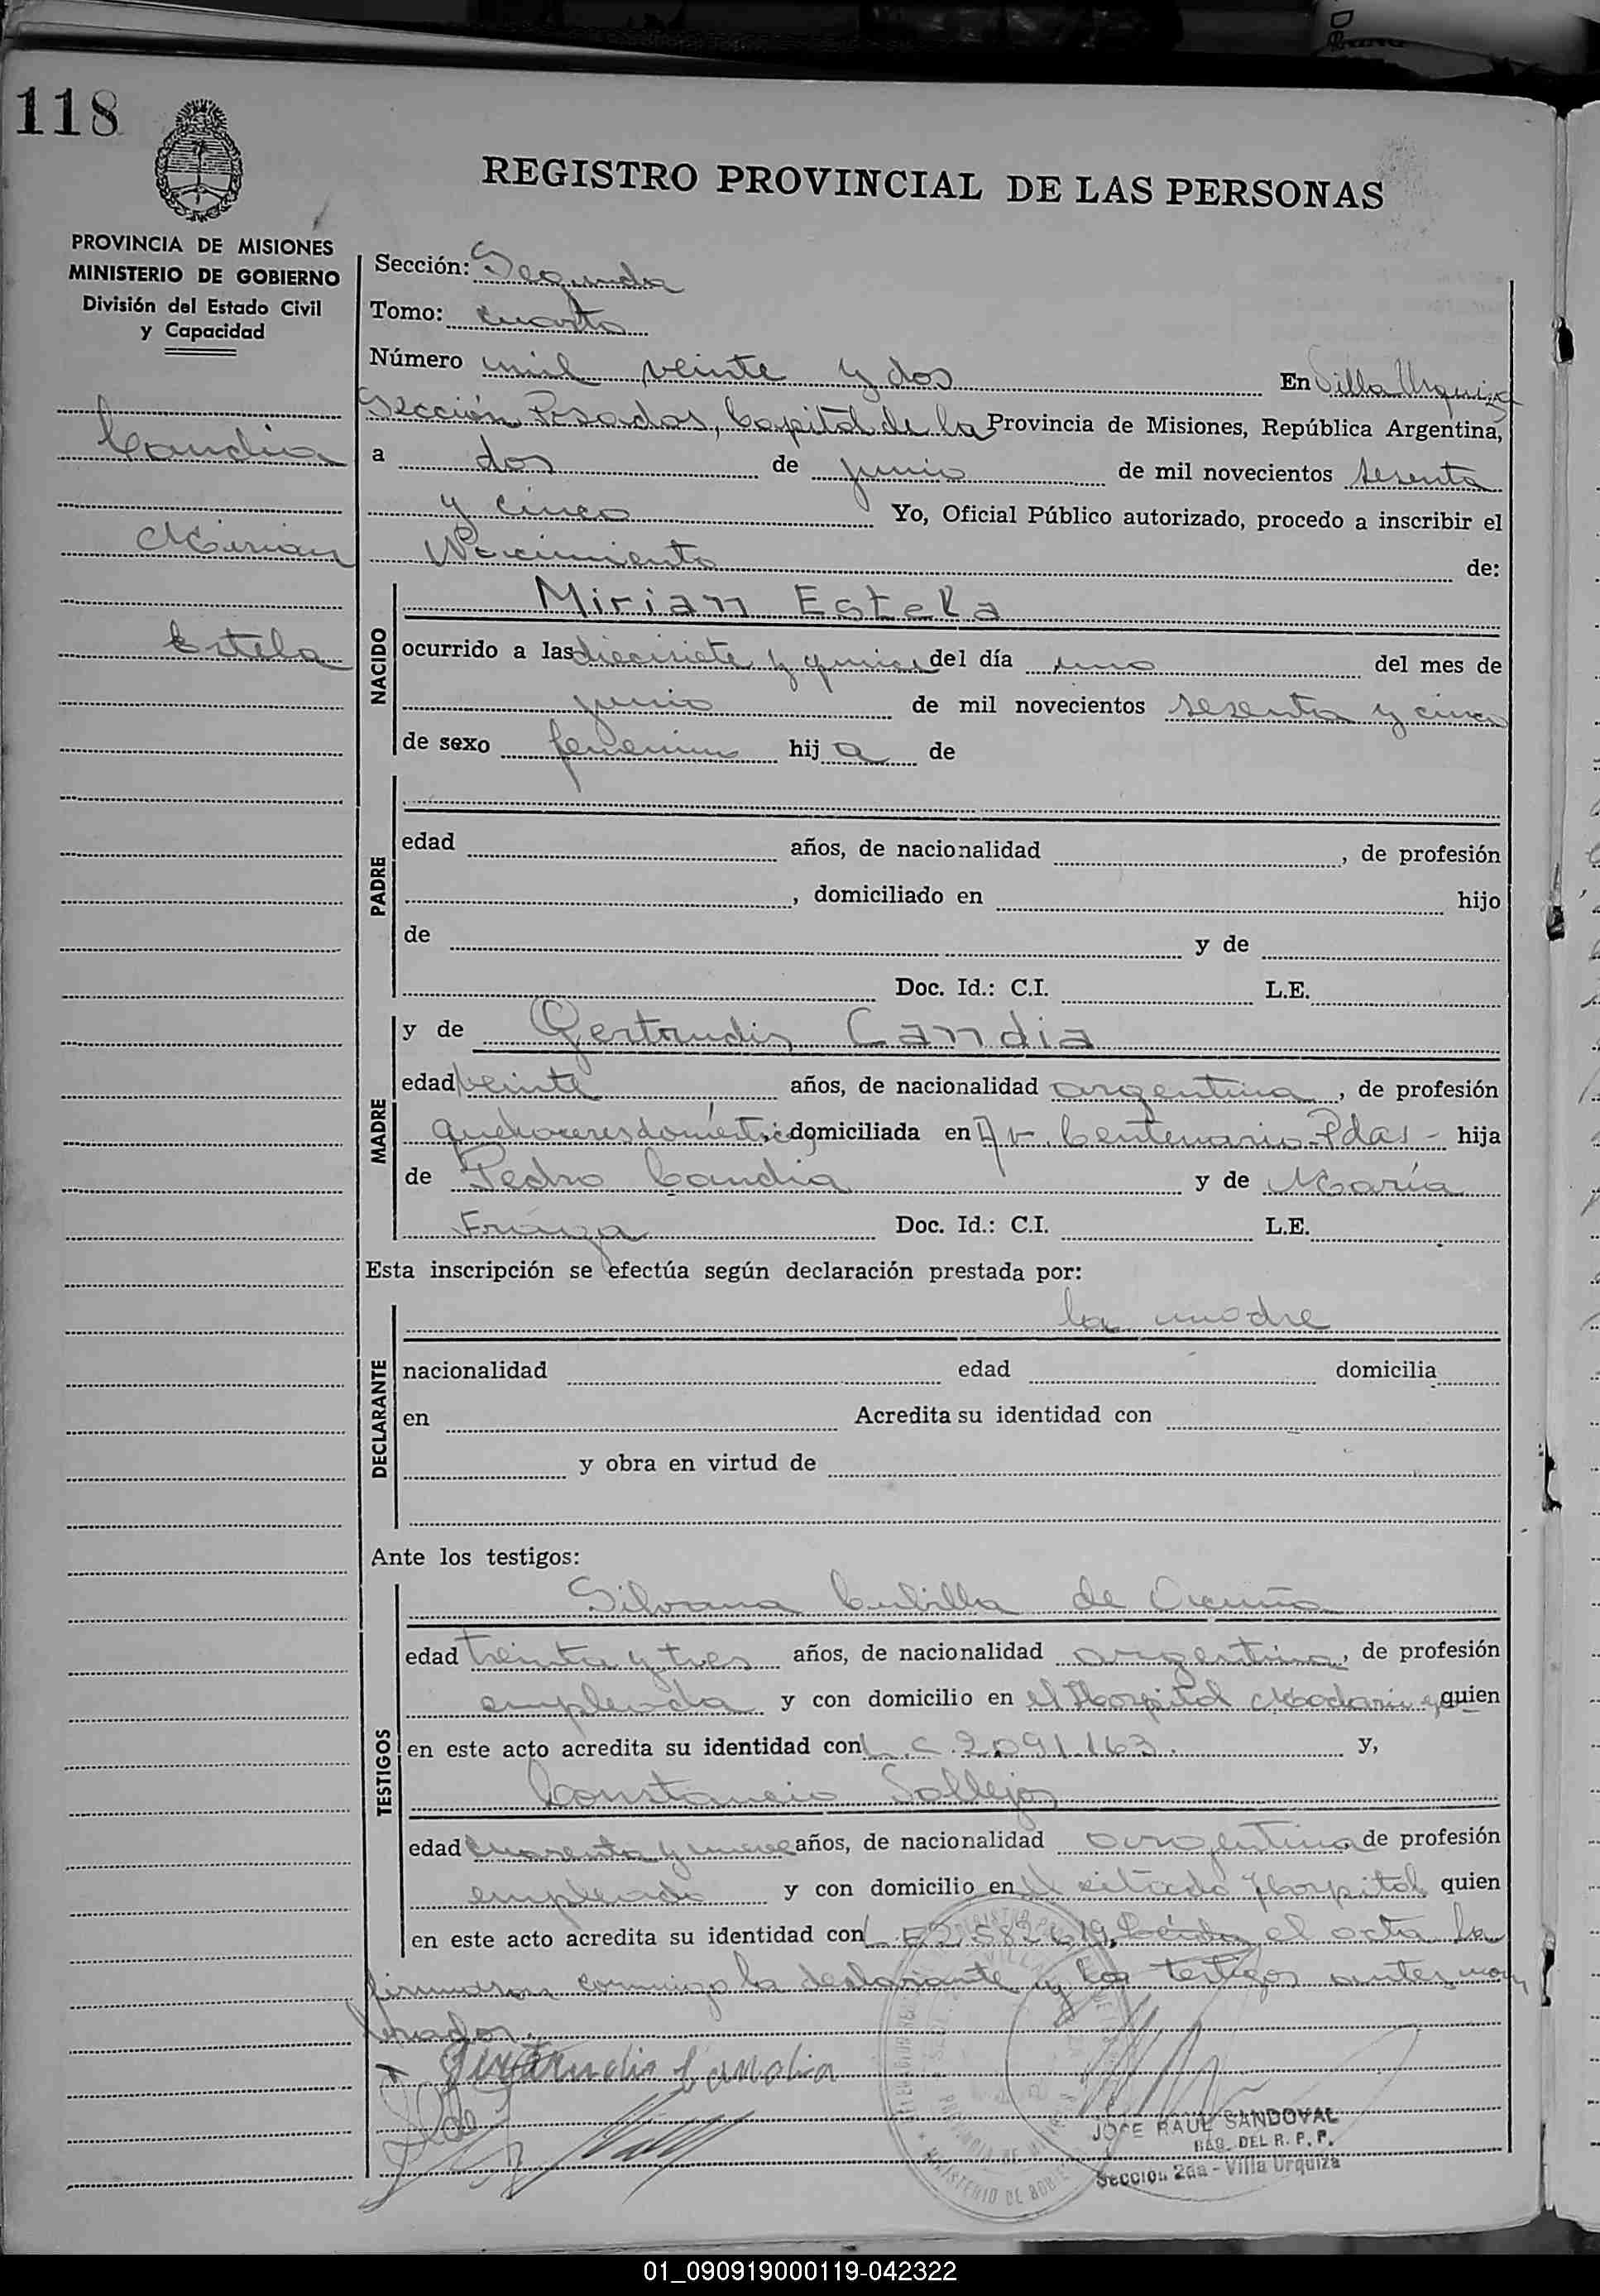 118
REGISTRO PROVINCIAL DE LAS PERSONAS
PROVINCIA DE MISIONES
MINISTERIO DE GOBIERNO
División del Estado Civil
y Capacidad
Candia
Mirian
Estela
Sección: Segunda
Tomo: cuarto
Número mil veinte y dos En Villa Urquiza
Sección Posadas, Capital de la Provincia de Misiones, República Argentina,
a dos de junio de mil novecientos sesenta
y cinco Yo, Oficial Público autorizado, procedo a inscribir el
Nacimiento de:
NACIDO
Mirian Estela
ocurrido a las diecisiete y quince del día uno del mes de
junio de mil novecientos sesenta y cinco
de sexo femenino hija de
PADRE
edad años, de nacionalidad , de profesión
, domiciliado en hijo
de y de
Doc. Id.: C.I. L.E.
MADRE
y de Gertrudis Candia
edad veinte años, de nacionalidad argentina, de profesión
quehaceres domésticos, domiciliada en Av. Centenario-Pdas- hija
de Pedro Candia y de María
Doc. Id.: C.I. L.E.
Esta inscripción se efectúa según declaración prestada por:
DECLARANTE
la madre
nacionalidad edad domicilia
en Acredita su identidad con
y obra en virtud de
Ante los testigos:
TESTIGOS
Silvana Cubilla de Acuña
edad treinta y tres años, de nacionalidad argentina, de profesión
empleada y con domicilio en el Hospital Madariaga quien
en este acto acredita su identidad con L.C. 2.091.163. y,
Constancio Sollejos
edad cuarenta y nueve años, de nacionalidad argentina de profesión
empleado y con domicilio en el citado Hospital quien
en este acto acredita su identidad con L.E 2.582.619. Leída el acta la
firmaron conmigo la declarante y los testigos antes mon
brados.
Gertrudis Candia
JOSE RAUL SANDOVAL
DEL R. P. P.
Sección 2da - Villa Urquiza
PROVINCIA DE
MINISTERIO DE GOB
01_090919000119-042322